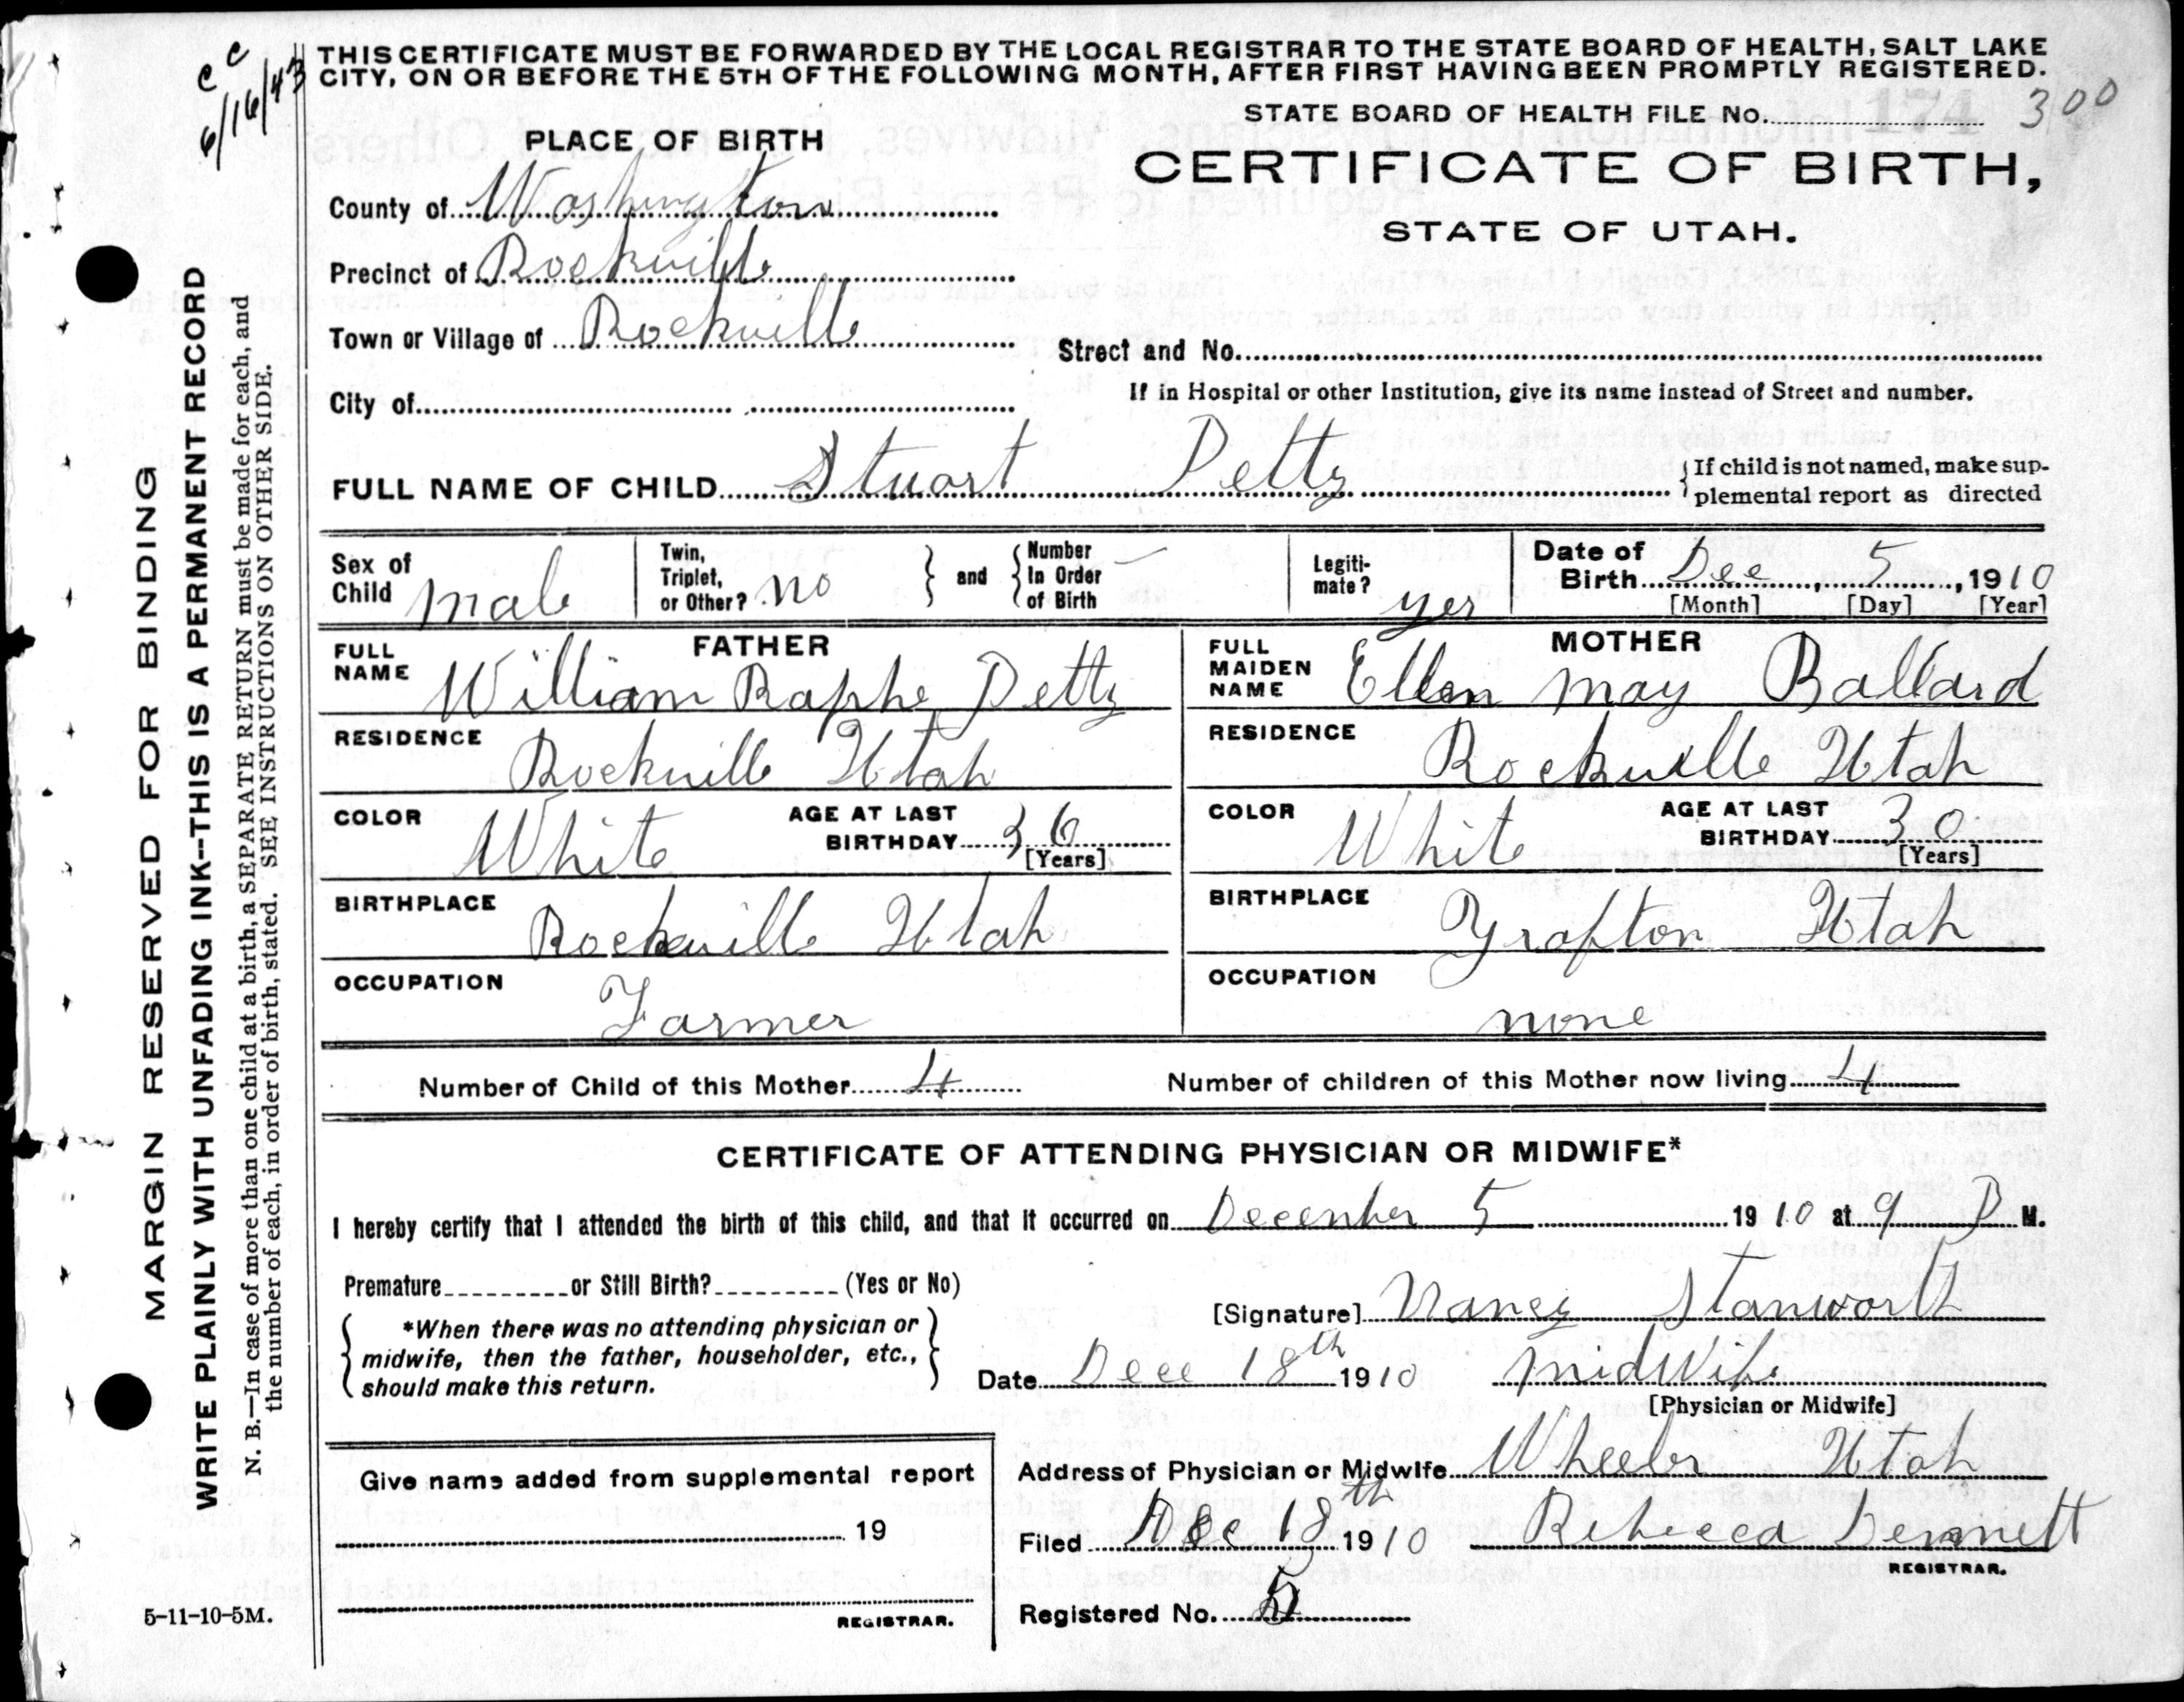 c c
6/16/43
THIS CERTIFICATE MUST BE FORWARDED BY THE LOCAL REGISTRAR TO THE STATE BOARD OF HEALTH, SALT LAKE
CITY, ON OR BEFORE THE 5TH OF THE FOLLOWING MONTH, AFTER FIRST HAVING BEEN PROMPTLY REGISTERED.
STATE BOARD OF HEALTH FILE No. 174 300
PLACE OF BIRTH
CERTIFICATE OF BIRTH,
STATE OF UTAH.
County of Washington
Precinct of Rockville
Town or Village of Rockville
Street and No.
City of
If in Hospital or other Institution, give its name instead of Street and number.
FULL NAME OF CHILD Stuart Petty
{If child is not named, make sup-
plemental report as directed
Sex of Child male
Twin, Triplet, or Other? no } and { Number In Order of Birth —
Legiti-mate? yes
Date of Birth Dec, 5, 1910
[Month] [Day] [Year]
FATHER
FULL NAME William Raphe Petty
RESIDENCE Rockville Utah
COLOR White AGE AT LAST BIRTHDAY 36 [Years]
BIRTHPLACE Rockville Utah
OCCUPATION Farmer
MOTHER
FULL MAIDEN NAME Ellen May Ballard
RESIDENCE Rockville Utah
COLOR White AGE AT LAST BIRTHDAY 30 [Years]
BIRTHPLACE Grafton Utah
OCCUPATION none
Number of Child of this Mother 4 Number of children of this Mother now living 4
CERTIFICATE OF ATTENDING PHYSICIAN OR MIDWIFE*
I hereby certify that I attended the birth of this child, and that it occurred on December 5 1910 at 9 P M.
Premature or Still Birth? (Yes or No)
{ *When there was no attending physician or
midwife, then the father, householder, etc.,
should make this return. }
[Signature] Nancy Stanworth
Date Dec 18th 1910 midwife
[Physician or Midwife]
Address of Physician or Midwife Wheeler Utah
Filed Dec 18th 1910 Rebecca Dennett
REGISTRAR.
Registered No. 5
Give name added from supplemental report
19
REGISTRAR.
MARGIN RESERVED FOR BINDING
WRITE PLAINLY WITH UNFADING INK--THIS IS A PERMANENT RECORD
N. B.—In case of more than one child at a birth, a SEPARATE RETURN must be made for each, and
the number of each, in order of birth, stated. SEE INSTRUCTIONS ON OTHER SIDE.
5-11-10-5M.